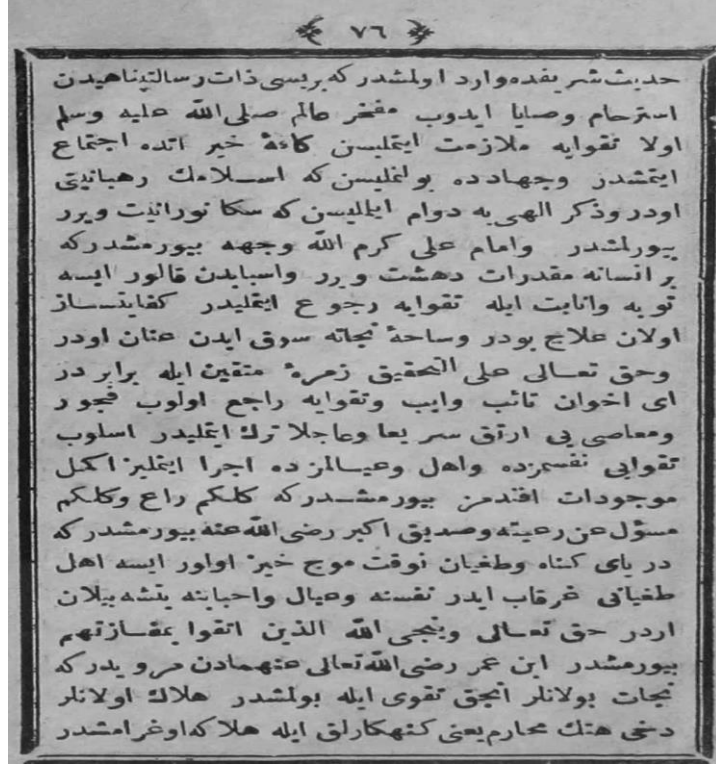 ٧٦
حديث شريفده وارد اولمشدركه بريسى ذات رسالتپناهيدن
استرحام وصايا ايدوب مفخر عالم صلى الله عليه وسلم
اولا تقوايه ملازمت ايتمليسن كافۀ خير انده اجتماع
ايتمشدر وجهادده بولنمليسن كه اسلامك رهبانيتى
اودر وذكر الهى يه دوام ايلمليسن كه سكا نورانيت ويرر
بيورلمشدر وامام على كرم الله وجهه بيورمشدركه
بر انسانه مقدرات دهشت ويرر واسبابدن قالور ايسه
توبه وانابت ايله تقوايه رجوع ايتمليدر كفايتساز
اولان علاج بودر وساحۀ نجاته سوق ايدن عنان اودر
وحق تعالى على التحقيق زمرۀ متقين ايله برابر در
اى اخوان تائب وايب وتقوايه راجع اولوب فجور
ومعاصى يى ارتق سريعا وعاجلا ترك ايتمليدر اسلوب
تقوايى نفسمزده واهل وعيالمزده اجرا ايتمليز اكمل
موجودات افندمز بيورمشدركه كلكم راع وكلكم
مسؤل عن رعيته وصديق اكبر رضى الله عنه بيورمشدركه
درياى كناه وطغيان نوقت موج خيز اولور ايسه اهل
طغيانى غرقاب ايدر نفسنه وعيال واحبابنه يتشه بيلان
اردر حق تعالى وينجى الله الذين اتقوا بمفازتهم
بيورمشدر ابن عمر رضى الله تعالى عنهمادن مرويدركه
نجات بولانلر انجق تقوى ايله بولمشدر هلاك اولانلر
دخى هتك محارم يعنى كنهكارلق ايله هلاكه اوغرامشدر